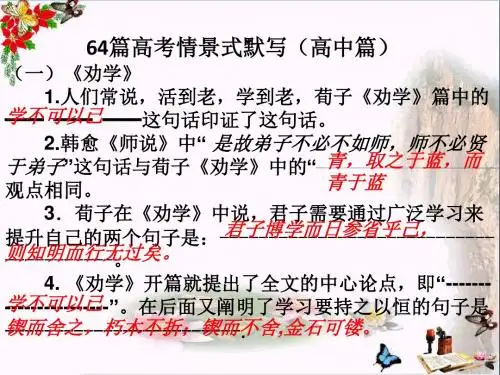 64篇高考情景式默写（高中篇）
（一）《劝学》
1.人们常说，活到老，学到老，荀子《劝学》篇中的
学不可以已——————这句话印证了这句话。
2.韩愈《师说》中“ 是故弟子不必不如师，师不必贤
于弟子”这句话与荀子《劝学》中的“青，取之于蓝，而
青于蓝
观点相同。
3．荀子在《劝学》中说，君子需要通过广泛学习来
提升自己的两个句子是：君子博学而日参省乎己，
则知明而行无过矣。
4.《劝学》开篇就提出了全文的中心论点，即“--------
学不可以已”。在后面又阐明了学习要持之以恒的句子是
锲而舍之，朽木不折，锲而不舍,金石可镂。